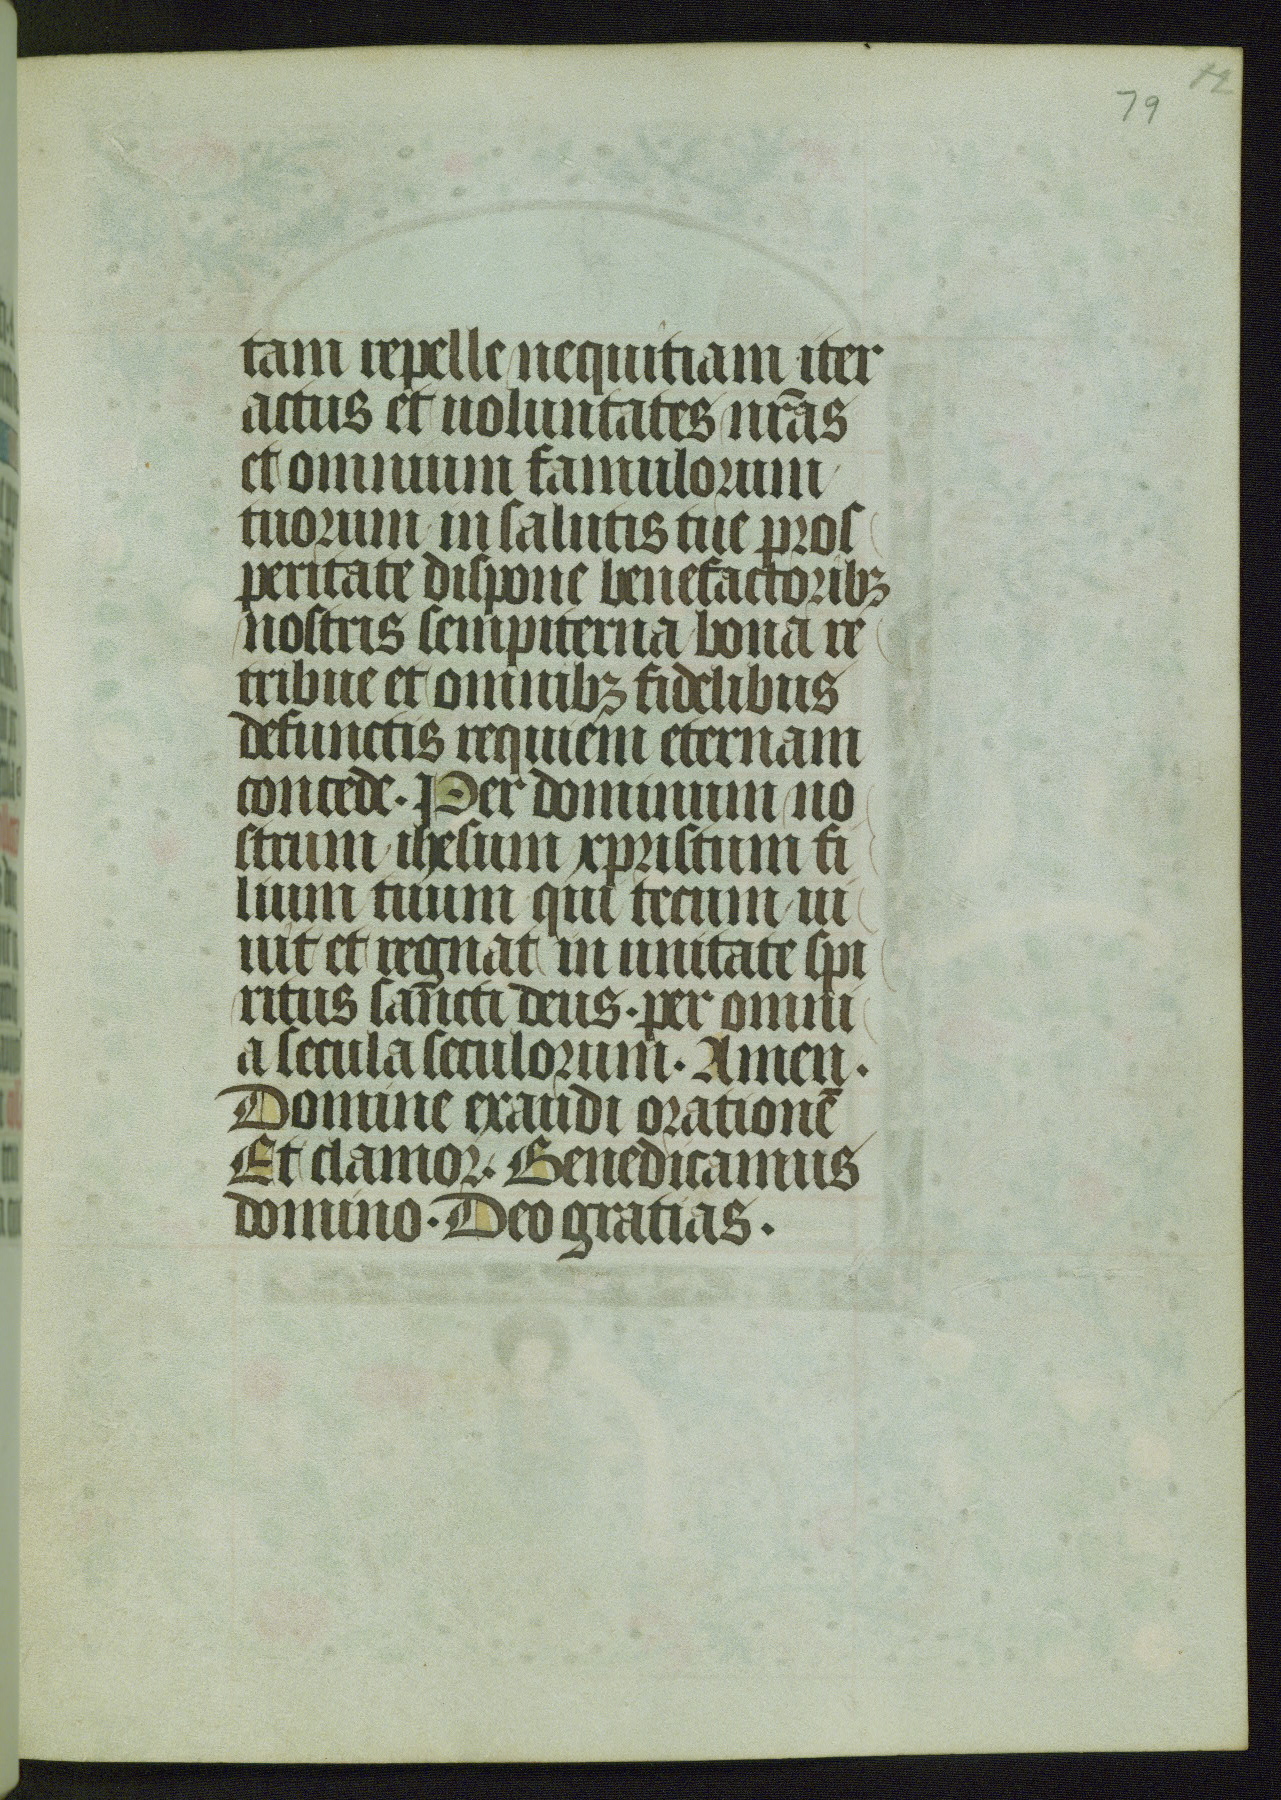 79
tam repelle nequitiam iter
actus et uoluntates nr̄as
et omnium famulorum
tuorum in salutis tue pros
peritate dispone benefactoribꝫ
nostris sempiterna bona re
tribue et omnibꝫ fidelibus
defunctis requiem eternam
concede. Per dominum no
strum ihesum xpristum fi
lium tuum qui tecum ui
uit et regnat in unitate spi
ritus san̄cti deus. per omni
a secula seculorum. Amen.
Domine exaudi orationē
Et clamor. Benedicamus
domino. Deo gratias.